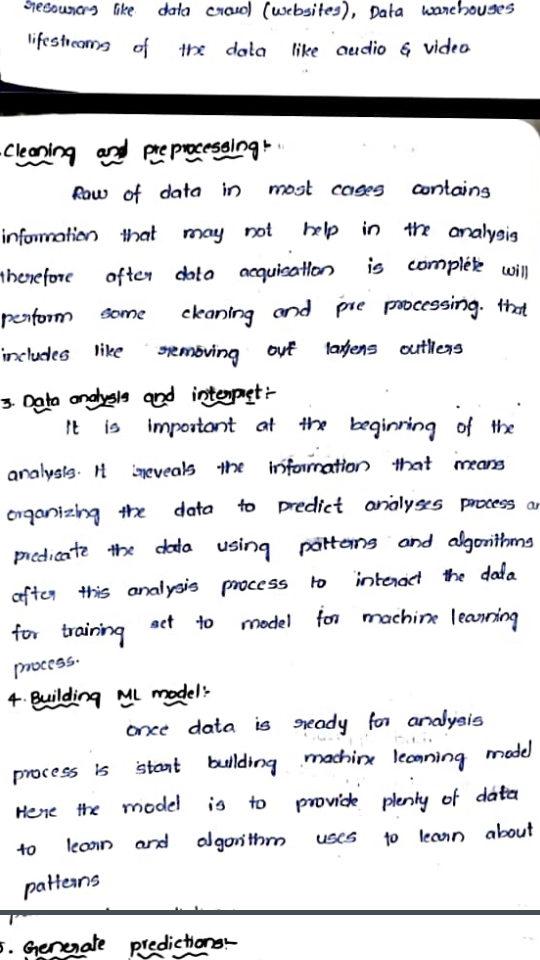 resources like data crawl (websites), Data warehouses
lifestreams of the data like audio & video
Cleaning and preprocessing:-
Raw of data in most cases contains
information that may not help in the analysis
therefore after data acquisation is complete will
perform some cleaning and pre processing. that
includes like removing out outliers
3. Data analysis and interpret:-
It is important at the beginning of the
analysis. It reveals the information that means
organizing the data to predict analyses process
predicate the data using patterns and algorithms
after this analysis process to interact the data
for training set to model for machine learning
process.
4. Building ML model:-
once data is ready for analysis
process is start building machine learning model
Here the model is to provide plenty of data
to learn and algorithm uses to learn about
patterns
5. Generate predictions:-